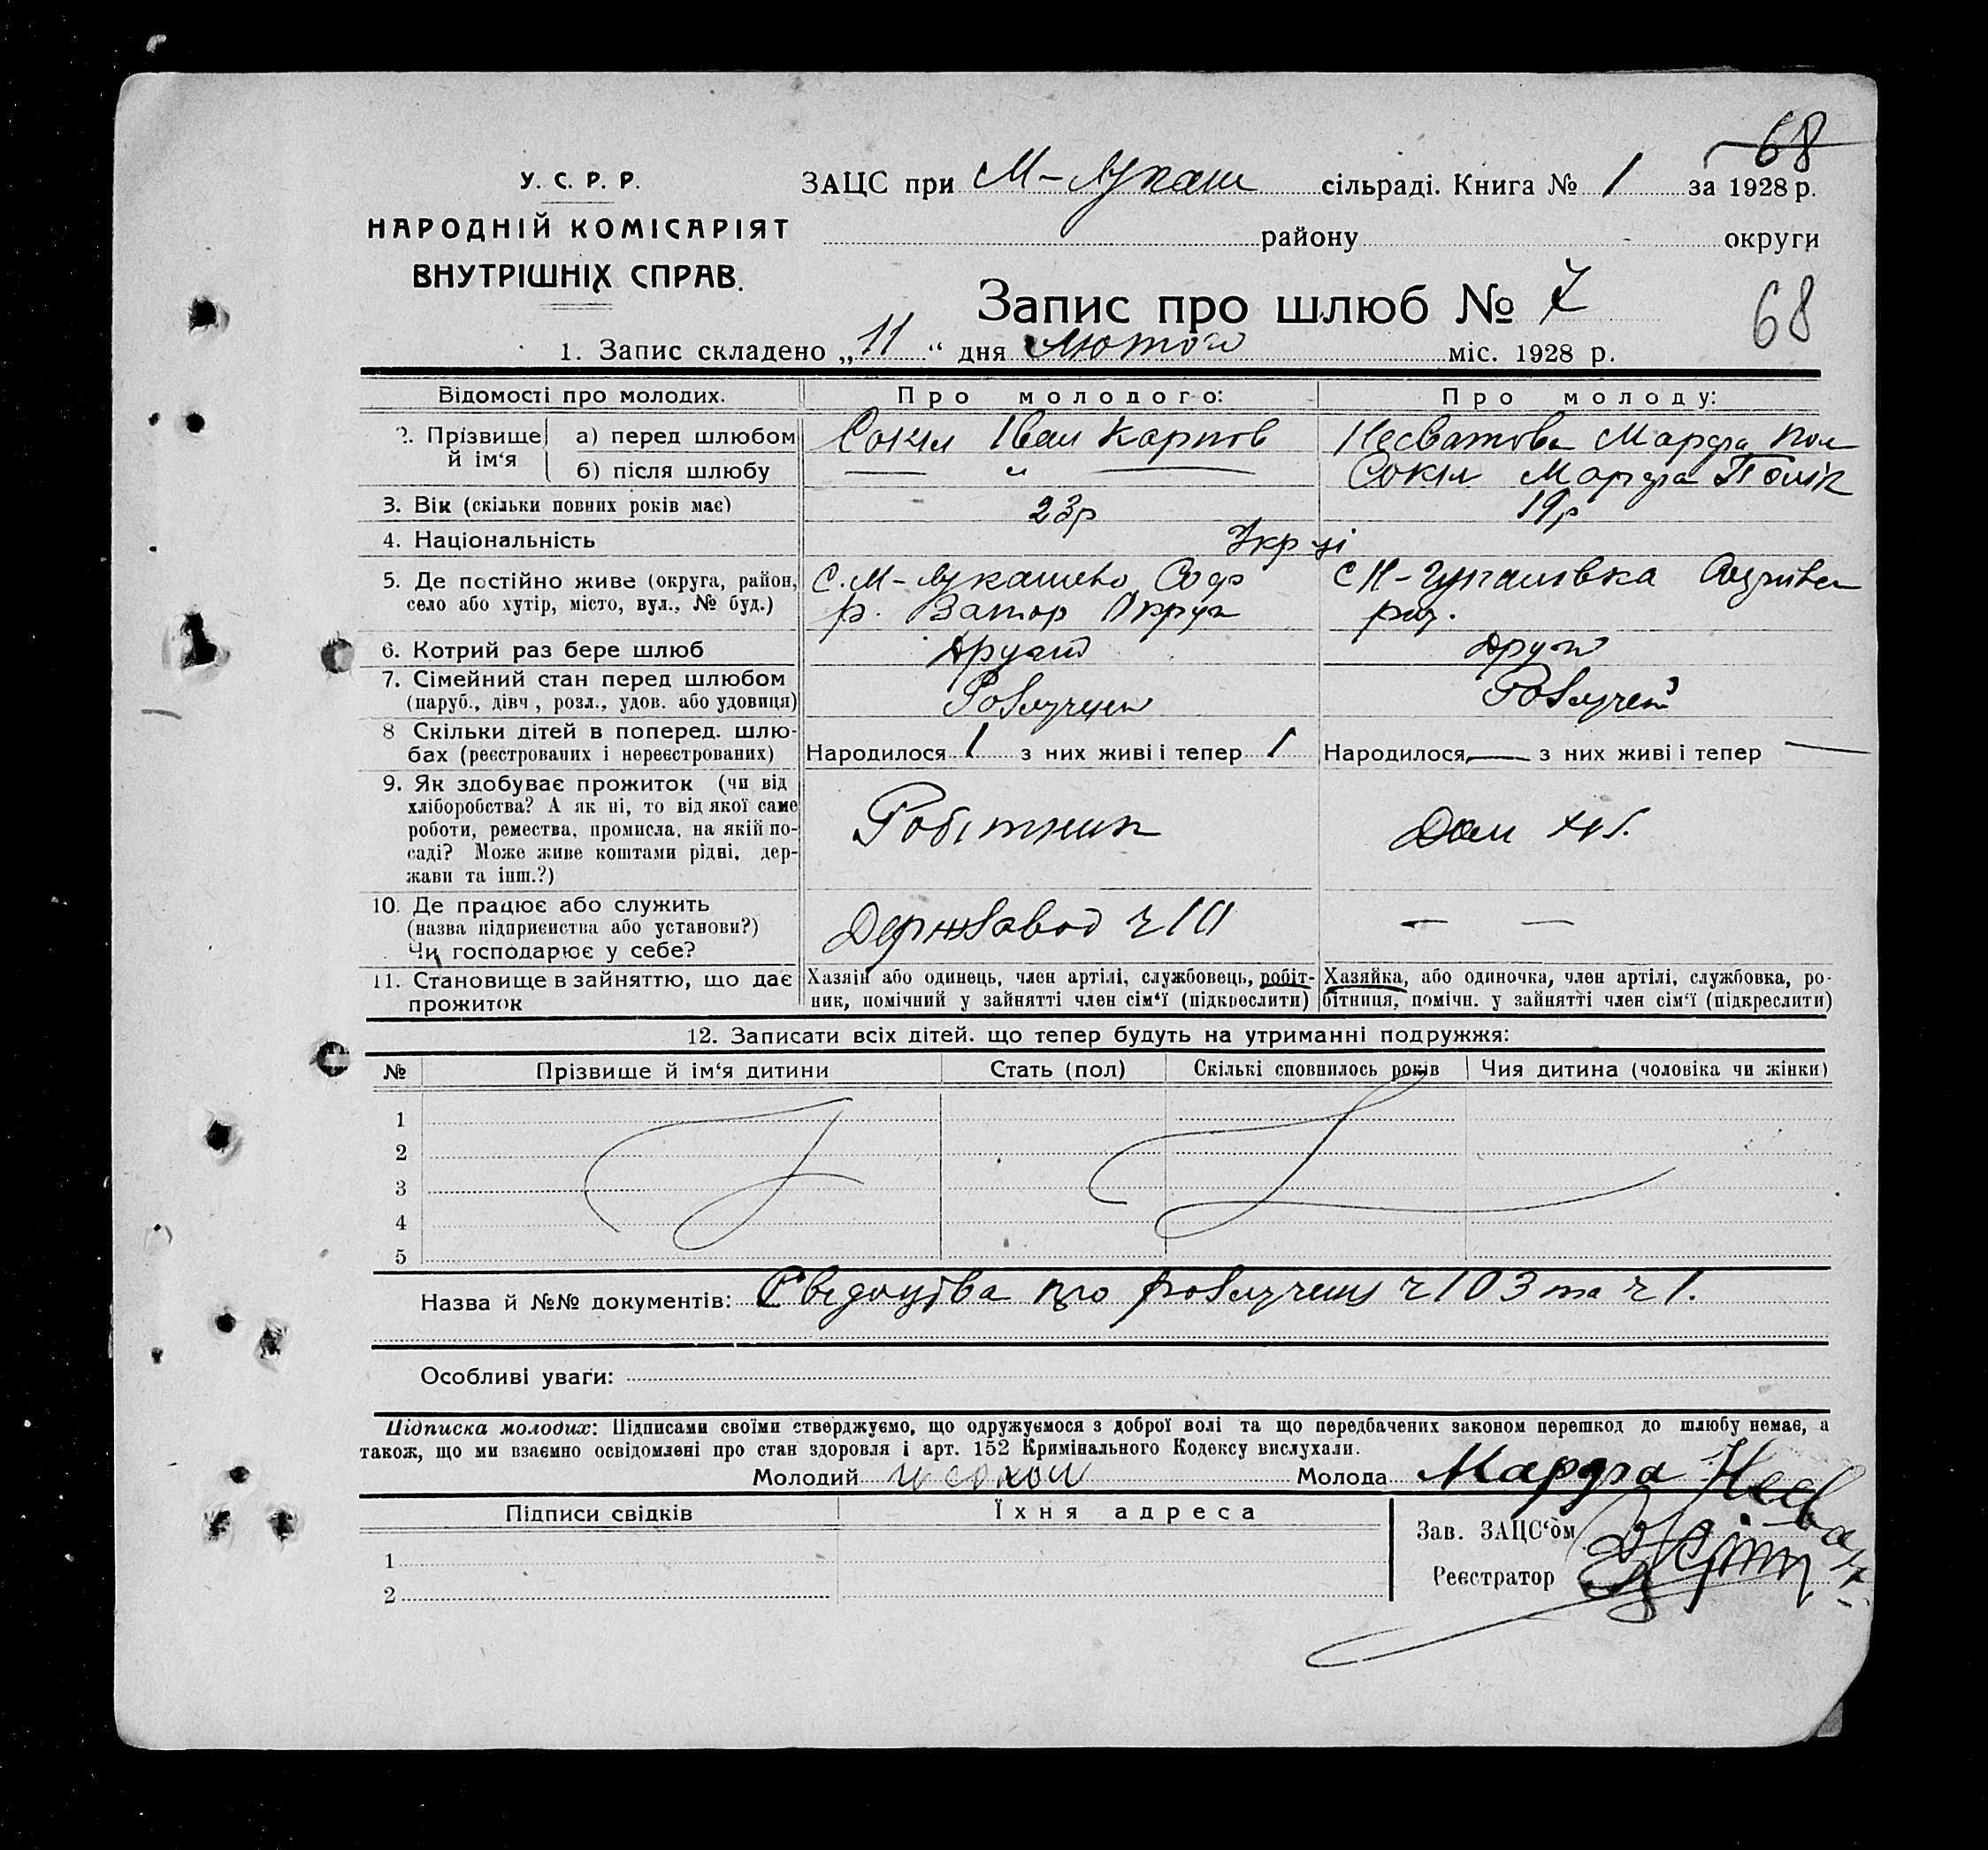 68
У. С. Р. Р.
НАРОДНІЙ КОМІСАРІЯТ
ВНУТРІШНІХ СПРАВ.
ЗАЦС при М-Лукаш сільраді. Книга № 1 за 1928 р.
району округи
Запис про шлюб № 7
68
1. Запис складено „11“ дня Лютого міс. 1928 р.
Відомості про молодих. Про молодого: Про молоду:
2. Прізвище й ім‘я а) перед шлюбом Сокіл Іван Карпов Несватова Марфа Пол
б) після шлюбу — „ — Сокіл Марфа Полік
3. Вік (скільки повних років має) 23р 19р
4. Національність Укр-ці
5. Де постійно живе (округа, район, село або хутір, місто, вул., № буд.)
С. М-Лукашево Соф
р. Запор Округи
с Н-Гупаловка
6. Котрий раз бере шлюб Другий Други
7. Сімейний стан перед шлюбом
(паруб., дівч., розл., удов. або удовиця) Розлучени Розлучен
8 Скільки дітей в поперед. шлю-
бах (реєстрованих і нереєстрованих) Народилося 1 з них живі і тепер 1 Народилося — з них живі і тепер —
9. Як здобуває прожиток (чи від
хліборобства? А як ні, то від якої саме
роботи, ремества, промисла, на якій по-
саді? Може живе коштами рідні, дер-
жави та інш.?)
Робітник Дом
10. Де працює або служить
(назва підприємства або установи?)
Чи господарює у себе?
Держзавод — —
11. Становище в зайняттю, що дає
прожиток
Хазяін або одинець, член артілі, службовець, робіт-
ник, помічний у зайнятті член сім‘ї (підкреслити)
Хазяйка, або одиночка, член артілі, службовка, ро-
бітниця, помічн. у зайнятті член сім‘ї (підкреслити)
12. Записати всіх дітей. що тепер будуть на утриманні подружжя:
№ Прізвище й ім‘я дитини Стать (пол) Скількі сповнилось років Чия дитина (чоловіка чи жінки)
1
2
3
4
5
Назва й №№ документів: Сведоцтва про розлучену ч 103 та ч 1.
Особливі уваги:
Підписка молодих: Підписами своїми стверджуємо, що одружуємося з доброї волі та що передбачених законом перешкод до шлюбу немає, а
також, що ми взаємно освідомлені про стан здоровля і арт. 152 Кримінального Кодексу вислухали.
Молодий и сокол Молода Марфа Несват
Підписи свідків Їхня адреса
Зав. ЗАЦС‘ом
1
Реєстратор
2